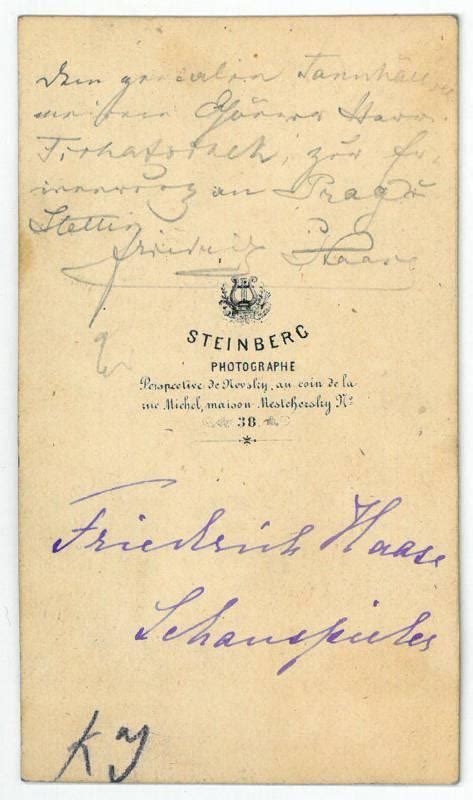 Dem genialen Tannhäuser
meinem Gönner Herrn
Tichatscheck, zur Er-
innerung an Prag &
Stettin
Friedrich Haase
STEINBERG
PHOTOGRAPHE
Perspective de Nevsky, au coin de la
rue Michel, maison Mestchersky Nº
38.
Friedrich Haase
Schauspieler